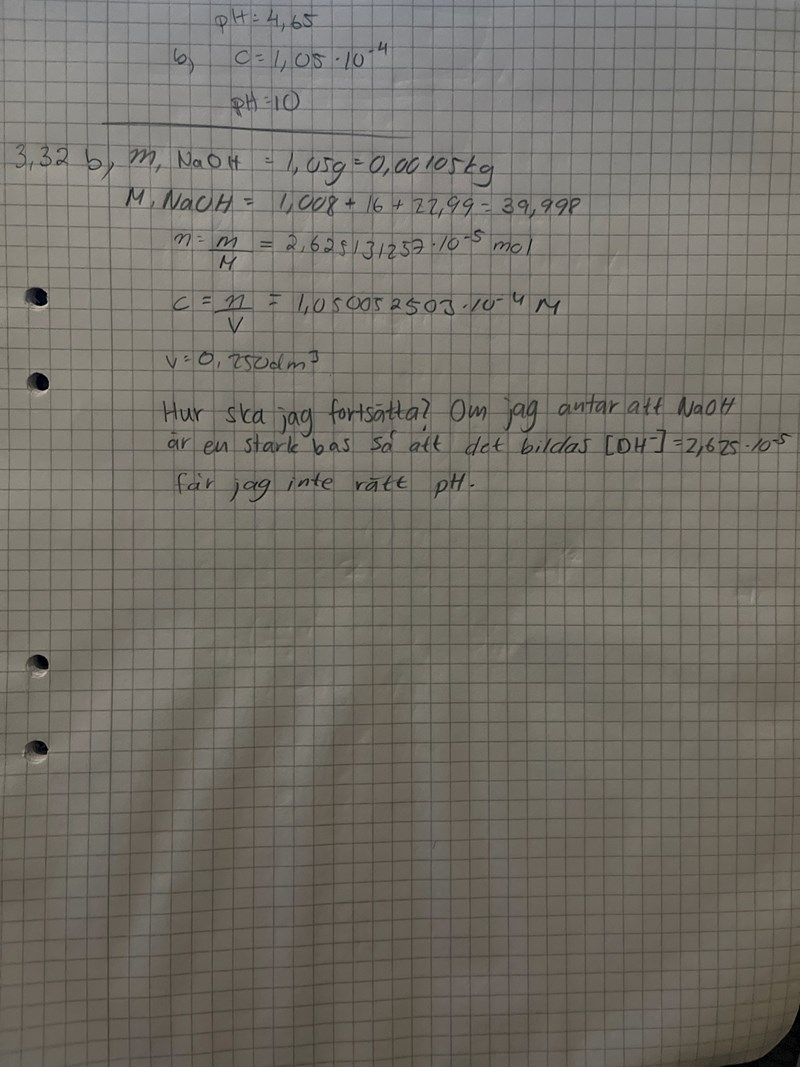 pH = 4,65
b) c = 1,05 · 10⁻⁴
pH = 10
3,32 b) m, NaOH = 1,05g = 0,00105kg
M, NaOH = 1,008 + 16 + 22,99 = 39,998
n = m/M = 2,625131257 · 10⁻⁵ mol
c = n/V = 1,050052503 · 10⁻⁴ M
v = 0,250dm³
Hur ska jag fortsätta? Om jag antar att NaOH
är en stark bas så att det bildas [OH⁻] = 2,625 · 10⁻⁵
får jag inte rätt pH.